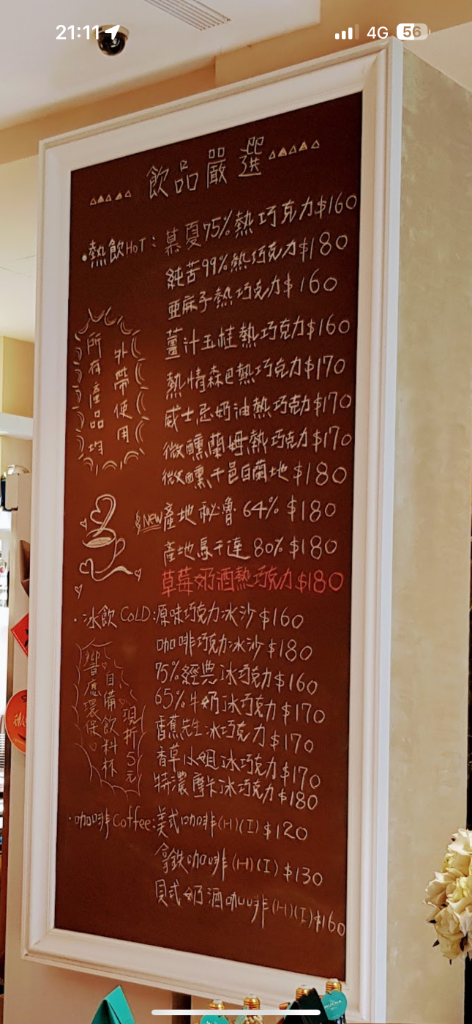 21:11 4G 56
飲品嚴選
熱飲HOT:
慕夏75%熱巧克力$160
純苦99%熱巧克力$180
亜麻子熱巧克力$160
薑汁玉桂熱巧克力$160
熱情森巴熱巧克力$170
威士忌奶油熱巧克力$170
微醺蘭姆熱巧克力$170
微醺干邑白蘭地$180
New產地祕魯64%$180
產地馬干達80%$180
草莓奶酒熱巧克力$180
外帶使用
所有產品均
冰飲COLD:原味巧克力冰沙$160
咖啡巧克力冰沙$180
75%經典冰巧克力$160
65%牛奶冰巧克力$170
香蕉先生冰巧克力$170
香草小姐冰巧克力$170
特濃摩卡冰巧克力$180
響應環保
自備飲料杯
現折5元
咖啡Coffee:美式咖啡(H)(I)$120
拿鐵咖啡(H)(I)$130
貝式奶酒咖啡(H)(I)$160